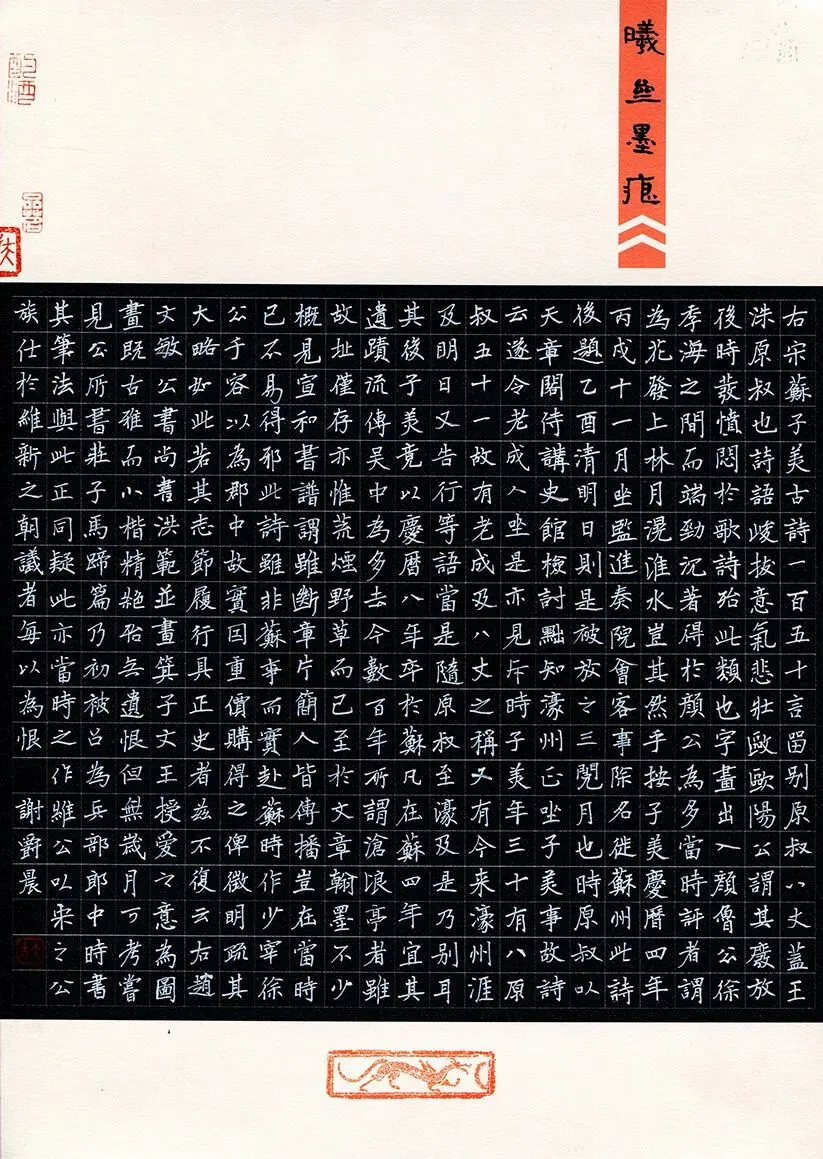 曦丝墨痕
右宋蘇子美古詩一百五十言留别原叔八丈蓋王
洙原叔也詩語峻拔意氣悲壯歐歐陽公謂其廢放
後時發憤悶於歌詩殆此類也字畫出入顔魯公徐
季海之間而端勁沉著得於顔公為多當時評者謂
為花發上林月滉淮水豈其然乎按子美慶曆四年
丙戌十一月坐監進奏院會客事除名徙蘇州此詩
後題乙酉清明日則是被放之三閱月也時原叔以
天章閣侍講史館檢討黜知濠州正坐子美事故詩
云遂令老成人坐是亦見斥時子美年三十有八原
叔五十一故有老成及八丈之稱又有今来濠州涯
及明日又告行等語當是隨原叔至濠及是乃别耳
其後子美竟以慶曆八年卒於蘇凡在蘇四年宜其
遺蹟流傳吴中為多去今數百年所謂滄浪亭者雖
故址僅存亦惟荒煙野草而已至於文章翰墨不少
概見宣和書譜謂雖斷章片簡人皆傳播豈在當時
已不易得邪此詩雖非蘇事而實赴蘇時作少宰徐
公于容以為郡中故實因重價購得之俾徵明疏其
大略如此若其志節履行具正史者兹不復云右趙
文敏公書尚書洪範並畫箕子文王授愛之意為圖
畫既古雅而小楷精絕殆無遺恨但無歲月可考嘗
見公所書莊子馬蹄篇乃初被召為兵部郎中時書
其筆法與此正同疑此亦當時之作維公以宋之公
族仕於維新之朝議者每以為恨 謝爵晨